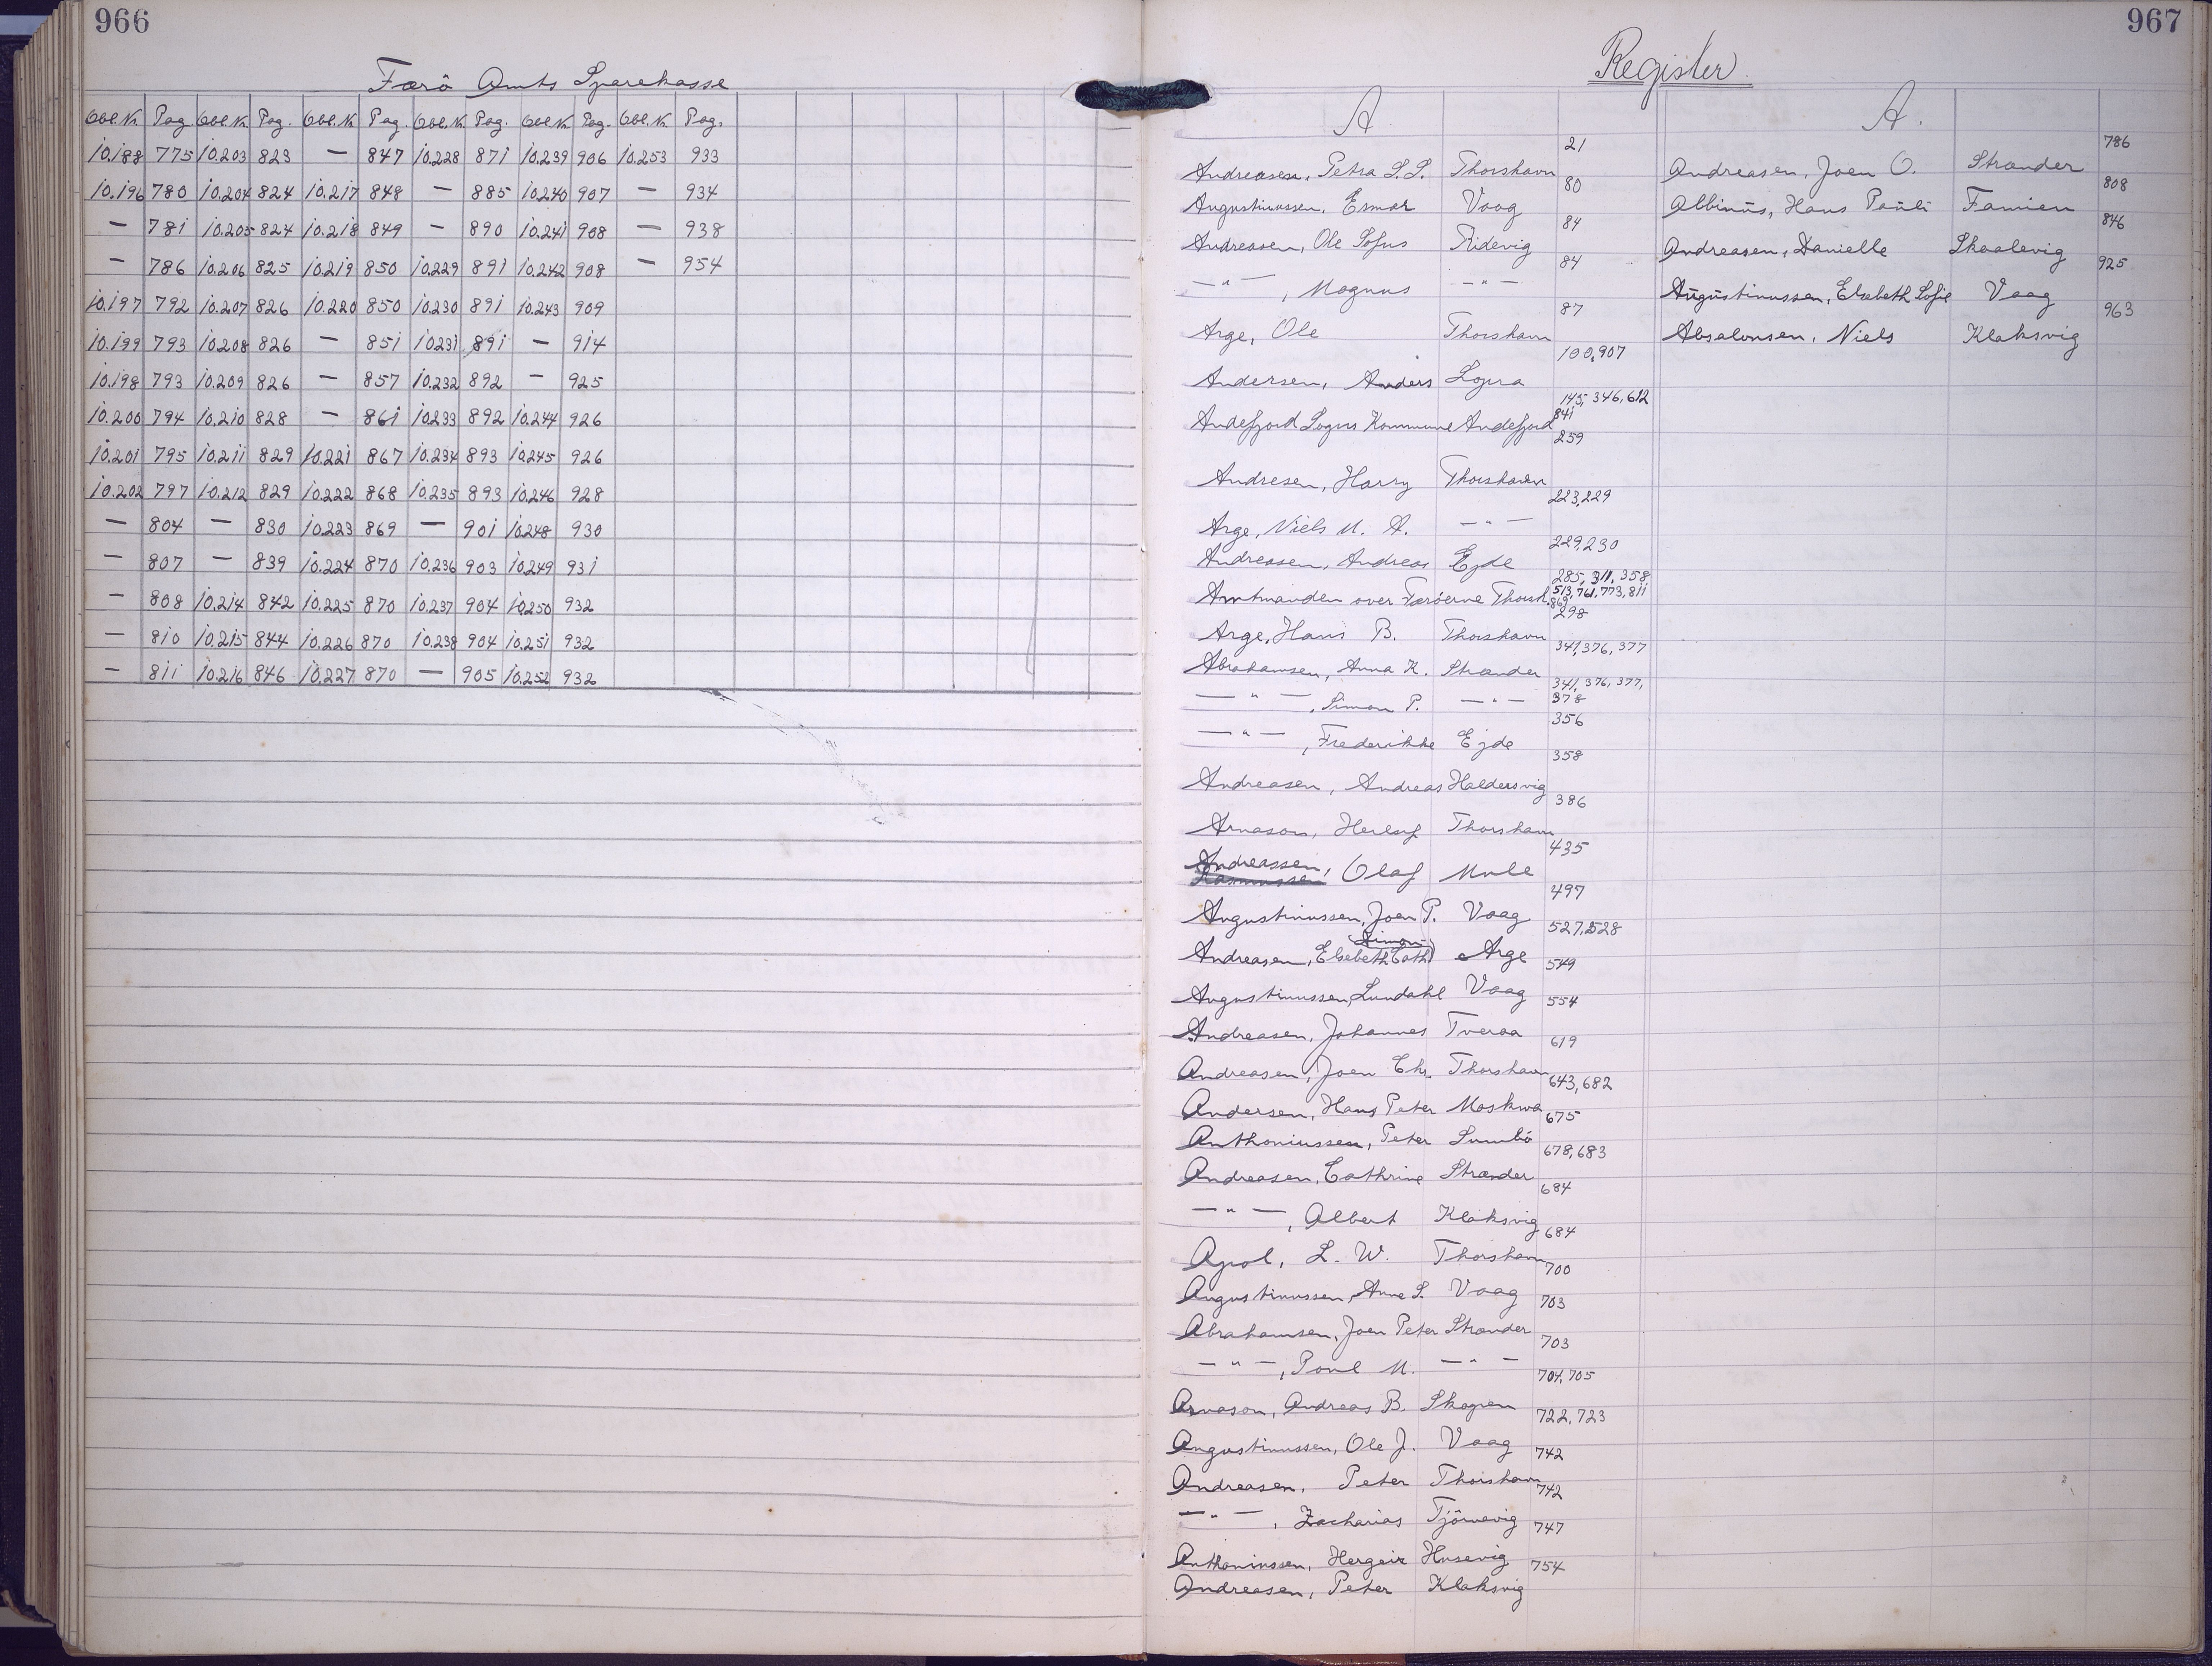 966
Færö Amts Sparekasse
Obl.N. Pag. Obl.N. Pag. Obl.N. Pag. Obl.N. Pag. Obl.N. Pag. Obl.N. Pag.
10.188 775 10.203 823 — 847 10.228 871 10.239 906 10.253 933
10.196 780 10.204 824 10.217 848 — 885 10.240 907 — 934
— 781 10.205 824 10.218 849 — 890 10.241 908 — 938
— 786 10.206 825 10.219 850 10.229 891 10.242 908 — 954
10.197 792 10.207 826 10.220 850 10.230 891 10.243 909
10.199 793 10.208 826 — 851 10231 891 — 914
10.198 793 10.209 826 — 857 10.232 892 — 925
10.200 794 10.210 828 — 861 10.233 892 10.244 926
10.201 795 10.211 829 10.221 867 10.234 893 10.245 926
10.202 797 10.212 829 10.222 868 10.235 893 10.246 928
— 804 — 830 10.223 869 — 901 10.248 930
— 807 — 839 10.224 870 10.236 903 10.249 931
— 808 10.214 842 10.225 870 10.237 904 10.250 932
— 810 10.215 844 10.226 870 10.238 904 10.251 932
— 811 10.216 846 10.227 870 — 905 10.252 932
967
Register
A
Andreasen, Petra S.S. Thorshavn 21
Augustinussen, Esmar Vaag 80
Andreasen, Ole Sofus Fidevig 84
—"—, Magnus —"— 84
Arge, Ole Thorshavn 87
Andersen, Anders Lopra 100,907
Andefjord Sogns Kommune Andefjord 145, 346, 612
841
Andresen, Harry Thorshavn 259
Arge, Niels M. A. —"— 223,229
Andreasen, Andreas Ejde 229,230
Amtmanden over Færöerne Thorsh. 285, 311, 358
513, 761, 773, 811
869
Arge, Hans B. Thorshavn 298
Abrahamsen, Anna K. Strænder 341, 376, 377
—"—, Simon P. —"— 341, 376, 377,
378
—"—, Frederikke Ejde 356
Andreasen, Andreas Haldersvig 358
Arnason, Herluf Thorshavn 386
Andreassen,
Rasmussen Olaf Mule 435
Augustinussen, Joen P. Vaag 497
Simon
Andreasen, Elsebeth Cath) Arge 527,528
Augustinussen, Lundahl Vaag 549
Andreasen, Johannes Tveraa 554
Andreasen, Joen Chr. Thorshavn 619
Andersen, Hans Peter Moskwa 643,682
Anthoniussen, Peter Sumbö 675
Andreasen, Cathrine Strænder 678,683
—"—, Albert Klaksvig 684
Apol, L. W. Thorshavn 684
Augustinussen, Anne S. Vaag 700
Abrahamsen, Joen Peter Strænder 703
—"—, Poul M. —"— 703
Arnason, Andreas B. Skopen 704,705
Augustinussen, Ole J. Vaag 722, 723
Andreasen, Peter Thorshavn 742
—"—, Zacharias Tjörnevig 742
Anthoniussen, Hergeir Husevig 747
Andreasen, Peter Klaksvig 754
A.
Andreasen, Joen O. Strænder 786
Albinus, Hans Pauli Famien 808
Andreasen, Danielle Skaalevig 846
Augustinussen, Elsebeth Sofie Vaag 925
Absalonsen, Niels Klaksvig 963